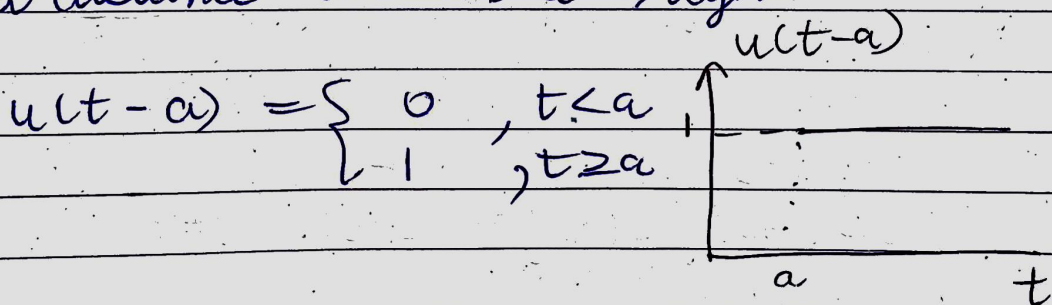 u(t-a)
u(t-a) = { 0 , t<a
1 , t≥a
1
a t